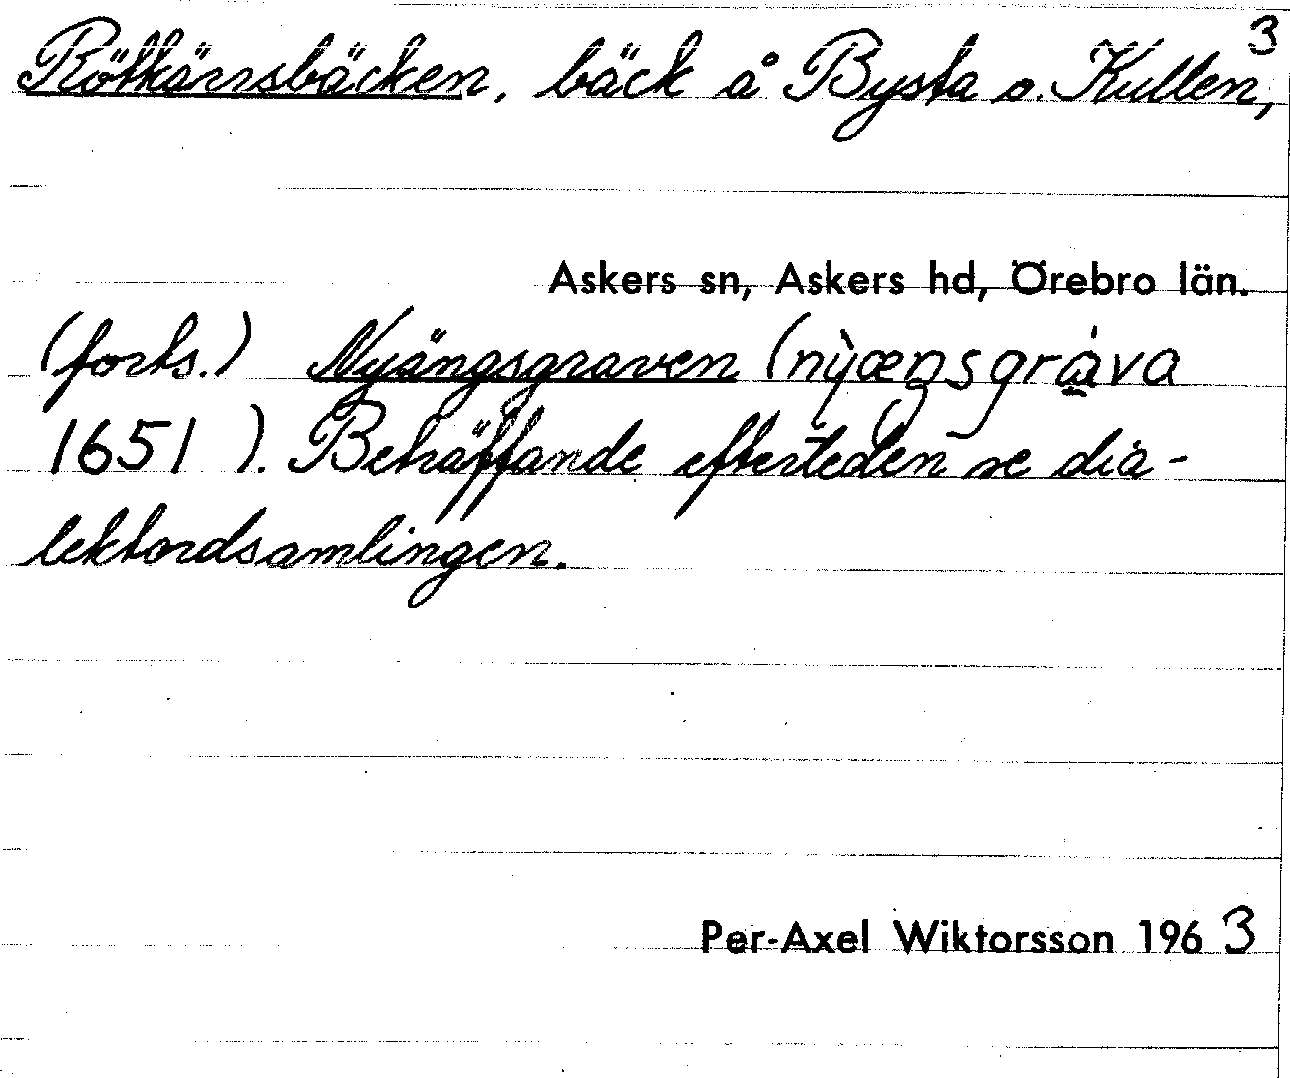 3
Rötkärrsbäcken, bäck å Bysta o. Kullen,
Askers sn, Askers hd, Örebro län.
(forts.) Nyängsgraven (nỳæŋsgràva
1651 ). Beträffande efterleden se dia-
lektordsamlingen.
Per-Axel Wiktorsson 1963